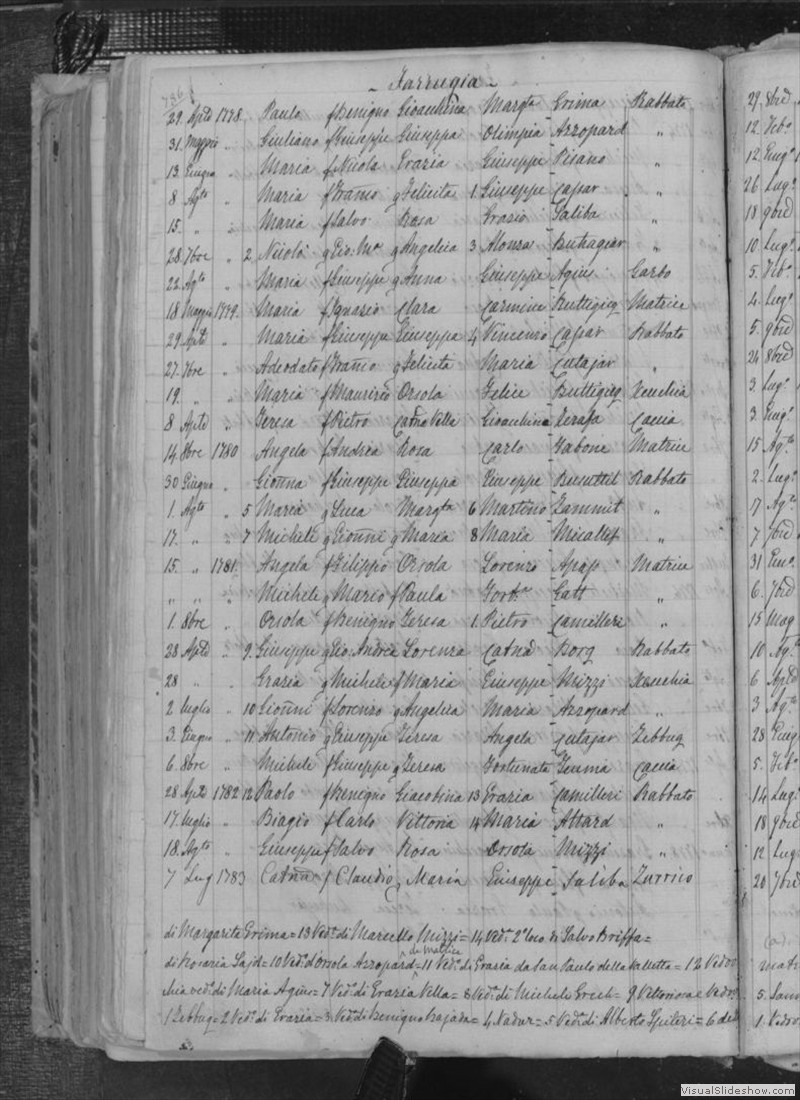 786
- Farrugia -
29 Aple 1778 Paulo f Benigno Gioachina Margta Grima Rabbato
31 Maggio " Giuliano f Giuseppe Giuseppa Olimpia Azzopard "
13 Giugno " Maria f Nicola Grazia Giuseppe Pisano "
8 Agto " Maria f Franco g Felicita 1 Giuseppe Caspar "
15 " " Maria f Salvo Rosa Grazio Saliba "
28 7bre " 2 Nicolò g Gio. Ma g Angelica 3 Alonza Buttagiar "
22 Agto " Maria f Giuseppe g Anna Giuseppe Agius Garbo
18 Maggio 1779 Maria f Ignazio Clara Carmine Buttigieg Matrice
29 Aple " Maria f Giuseppe Giuseppa 4 Vincenzo Caspar Rabbato
27 7bre " Adeodato f Franco g Felicita Maria Cutajar "
19 " " Maria f Maurizio Orsola Felice Buttigieg Xeuchia
8 Aple " Teresa f Pietro Catna Vella Gioachina Xerasa Caccia
14 8bre 1780 Angela f Andrea Rosa Carlo Gabone Matrice
30 Giugno " Gionna f Giuseppe Giuseppa Giuseppe Busuttil Rabbato
1 Agto " 5 Maria g Luca Margta 6 Martino Zammit "
17 " " 7 Michele g Gionni g Maria 8 Maria Micallef "
15 " 1781 Angela f Filippo Orsola Lorenzo Apap Matrice
" " " Michele g Mario f Paula Gatt "
1 8bre " Orsola f Benigno Teresa 1 Pietro Camilleri "
28 Aple " 9 Giuseppe g Gio: Andrea Lorenza Catna Borg Rabbato
28 " " Grazia g Michele f Maria Giuseppe Mizzi Xeuchia
2 Luglio " 10 Gionni f Lorenzo g Angelica Maria Azzopard "
3 Giugno " 11 Antonio g Giuseppe Teresa Angela Cutajar Zebbug
6 8bre " Michele f Giuseppe g Teresa Fortunata Teuma Caccia
28 Aple 1782 12 Paolo f Benigno Giacobina 13 Grazia Camilleri Rabbato
17 Luglio " Biagio f Carlo Vittoria 14 Maria Attard "
18 Agto " Giuseppe f Salvo Rosa Orsola Mizzi "
7 Lug 1783 Catna f Claudio g Maria Giuseppe Saliba Zurrico
di Margarita Grima = 13 Veda di Marcello Mizzi = 14 Veda 2o loco di Salvo Briffa =
di Rosaria Sajd = 10 Vedo d'Orsola Azzopard di Matrice = 11 Vedo di Grazia da San Paolo della Valletta = 12 Vedov
chia vedo di Maria Agius = 7 Vedo di Grazia Vella = 8 Veda di Michele Grech = 9 Vittoriosa e Vedov
1 Zebbug = 2 Vedo di Grazia = 3 Veda di Benigno Bajada = 4 Nadur = 5 Veda di Alberto Spiteri = 6 del
29 8bre
12 Febo
12 Lugo
26 Lugo
18 9bre
10 Lugo
5 Febo
4 Lugo
5 9bre
24 8bre
3 Lugo
3 Lugo
15 Agto
2 Lugo
17 Ago
7 7bre
31
6 7bre
15 Mag
10 Agto
6 Aple
3 Agto
28 Giug
5 Febo
14 Lugo
18 9bre
12 Lug
20 7bre
matr
5 San
1 Vedov
VisualSlideshow.com